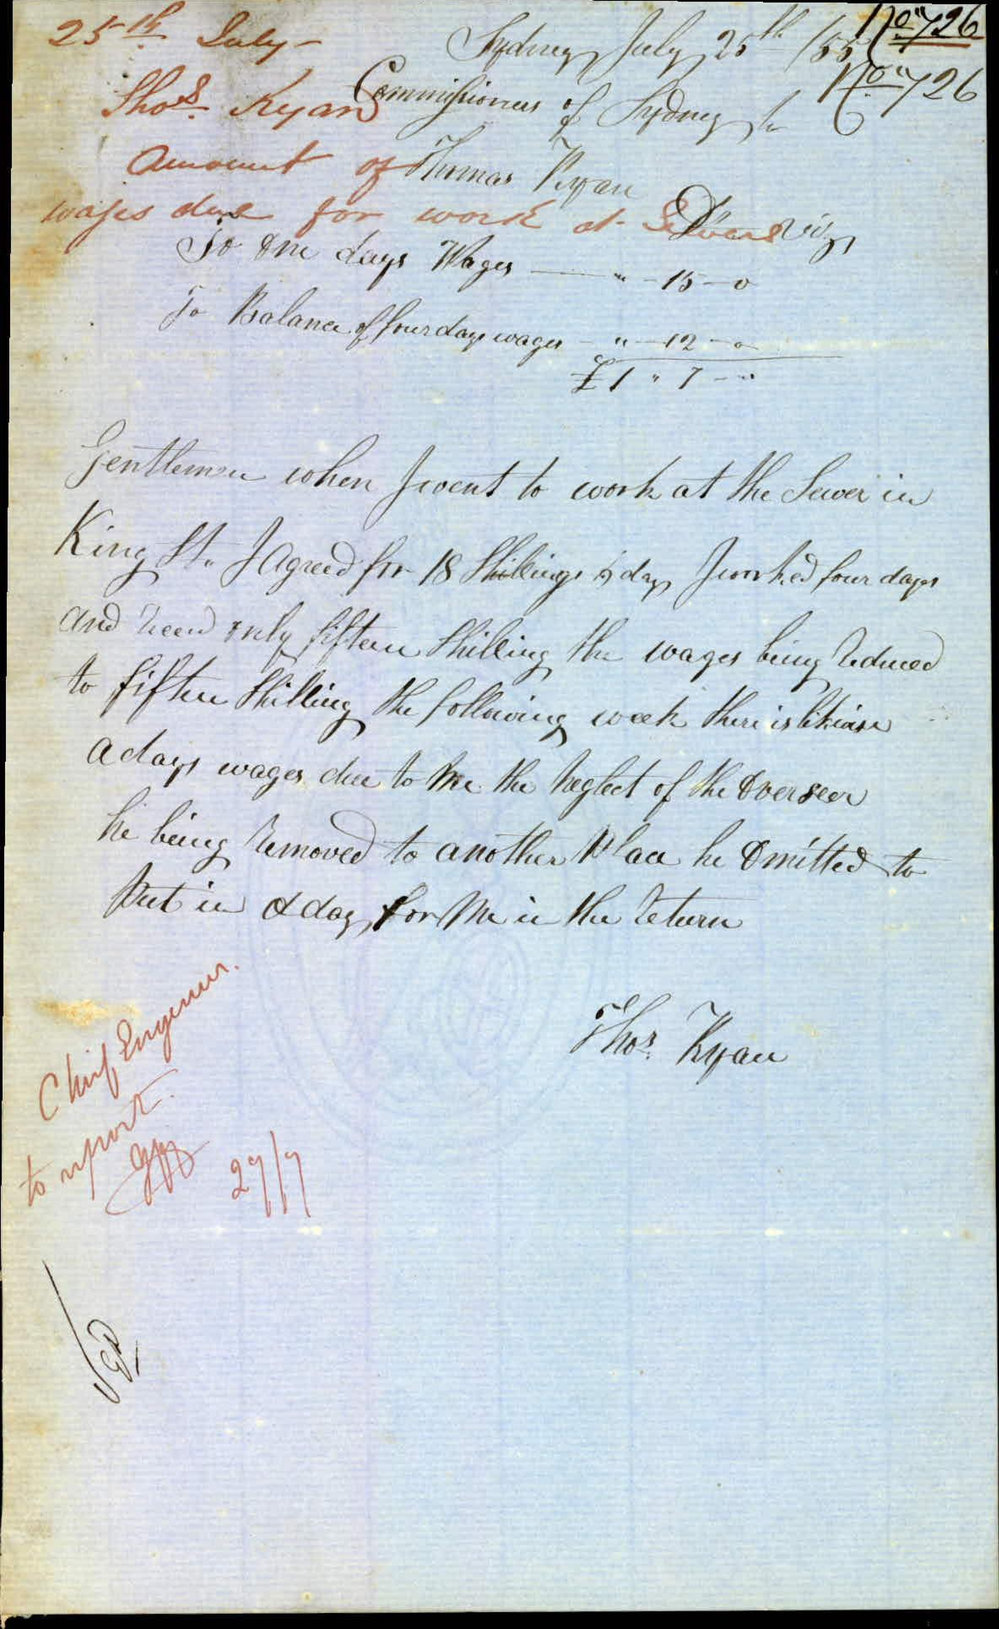 No 726
No 726
25th July
Sydney July 25th /55
Thos. Ryan
Commissioners of Sydney
amount of
Thomas Ryan
wages due for work at Sewers
Dr viz
To One days Wages — " - 15 - 0
To Balance of four days wages - " - 12 - 0
£1 " 7 - "
Gentlemen when I went to work at the Sewer in
King St. I Agreed for 18 Shillings day I worked four days
and only fifteen Shilling the wages being reduced
to fifteen Shilling the following week there is likewise
a days wages due to Me the Neglect of the Overseer
he being removed to another Place he Omitted to
Put in A day for Me in the return
Thos. Ryan
Chief Engineer.
to report.
27/7